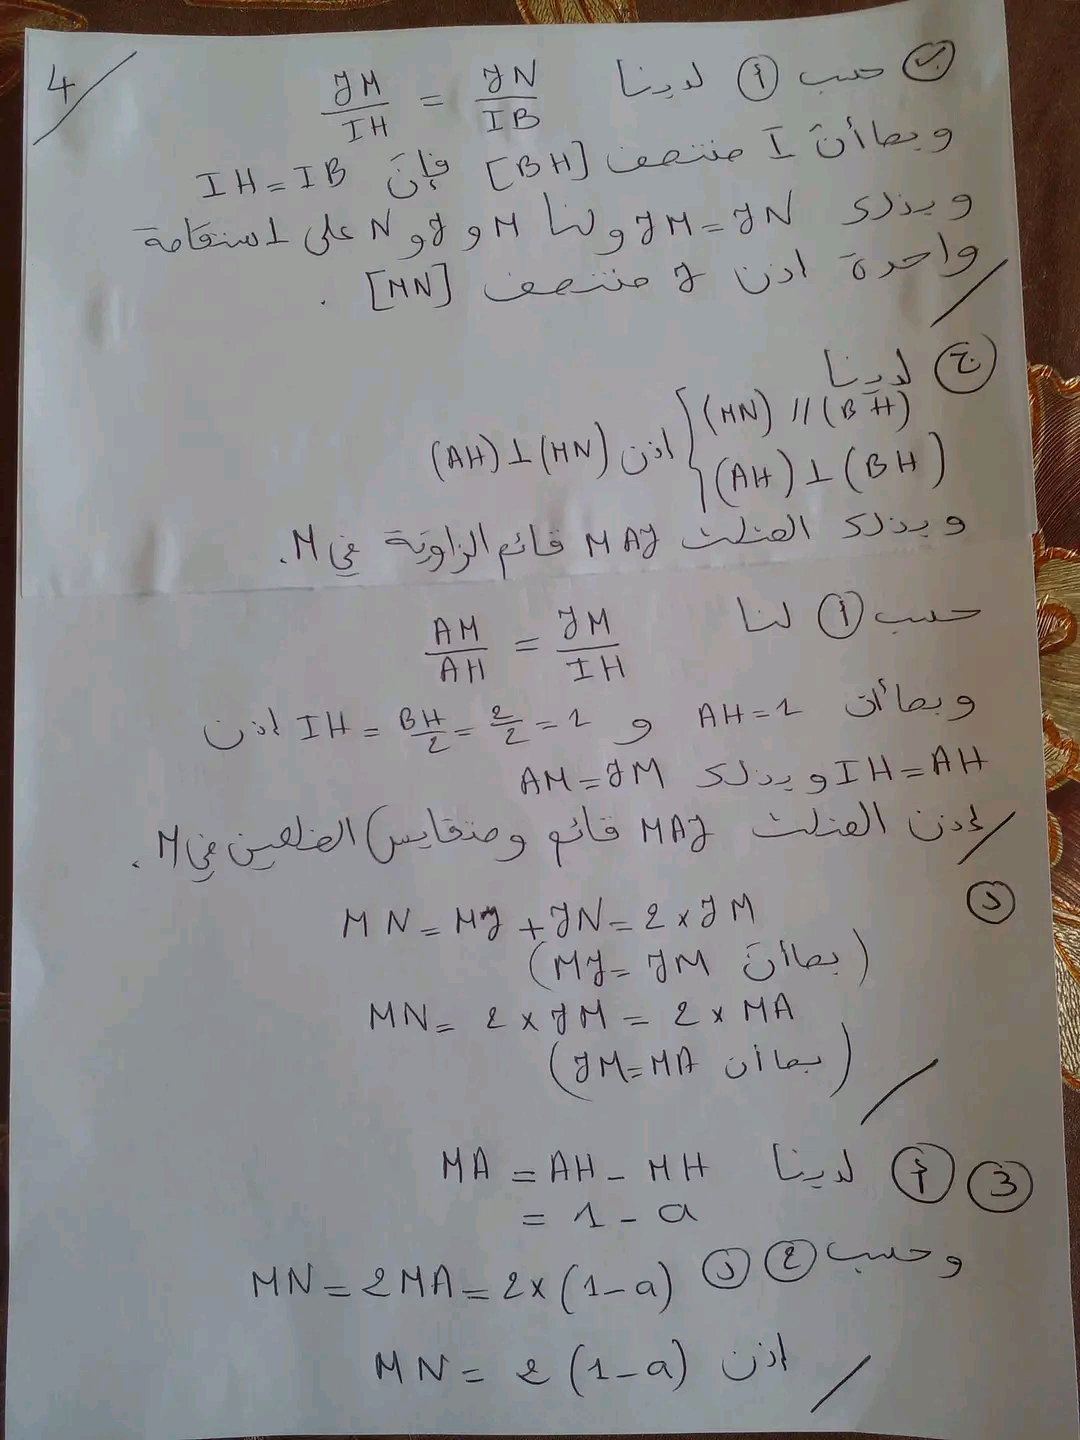 4
ب) حسب أ) لدينا JM/IH = JN/IB
وبما أنّ I منتصف [BH] فإنّ IH = IB
وبذلك JM = JN ولنا M و J و N على استقامة
واحدة اذن J منتصف [MN].
ج) لدينا
{ (MN) // (BH)
(AH) ⊥ (BH) اذن (AH) ⊥ (MN)
وبذلك المثلث MAJ قائم الزاوية في M.
حسب أ) لنا AM/AH = JM/IH
وبما أن AH = 1 و IH = BH/2 = 2/2 = 1 اذن
IH = AH وبذلك AM = JM
إذن المثلث MAJ قائم ومتقايس الضلعين في M.
د) MN = MJ + JN = 2 × JM
(بما أنّ MJ = JM)
MN = 2 × JM = 2 × MA
(بما أن JM = MA)
3) أ) لدينا MA = AH - MH
= 1 - a
وحسب 2) د) MN = 2MA = 2 × (1 - a)
اذن MN = 2 (1 - a)